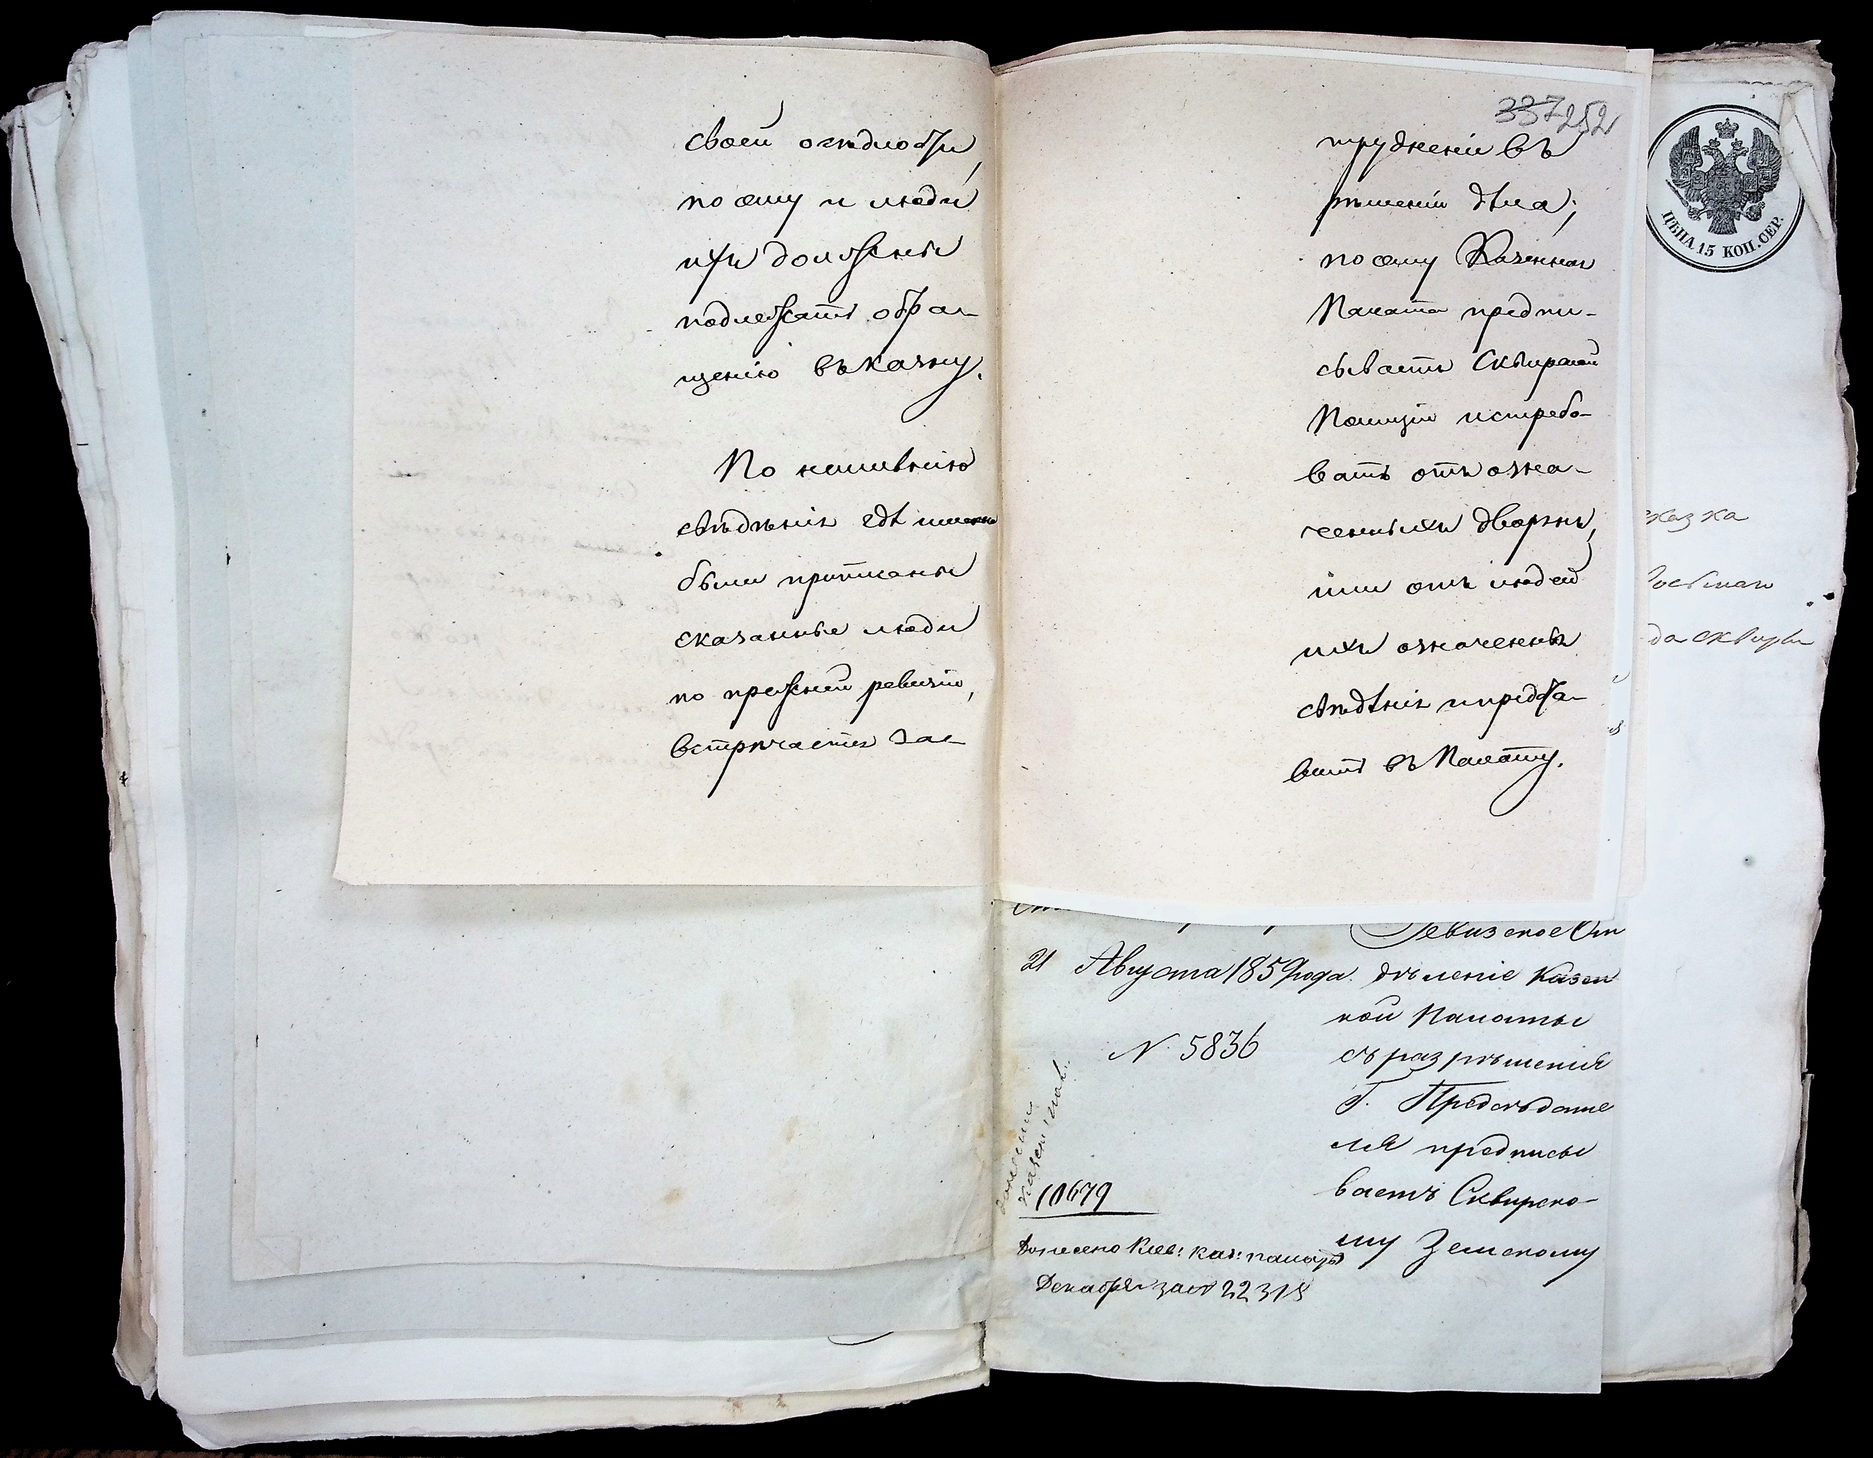 своей осѣдлости,
посему и люди
ихъ должны
подлежать обра-
щенію въ казну.
По неимѣнію
свѣдѣнія гдѣ именно
были приписаны
сказанные люди
по прежней ревизіи,
встрѣчается за-
337 252
трудненіе въ
рѣшеніи дѣла;
посему Казенная
Палата предпи-
сываетъ Сквирской
Полиціи истребо-
вать отъ озна-
ченныхъ дворянъ,
или отъ людей
ихъ означенныя
свѣдѣнія и предста-
вить въ Палату.
ЦѢНА 15 КОП. СЕР.
казка
да Сквиры
Ревизское От
21 Августа 1859 года. дѣленіе Казен
ной Палаты
N 5836 съ разрѣшенія
Г. Предсѣдате
ля предписы
ваетъ Сквирско-
му Земскому
10679
Донесено Кіев: каз: палатѣ
Декабря за № 22318